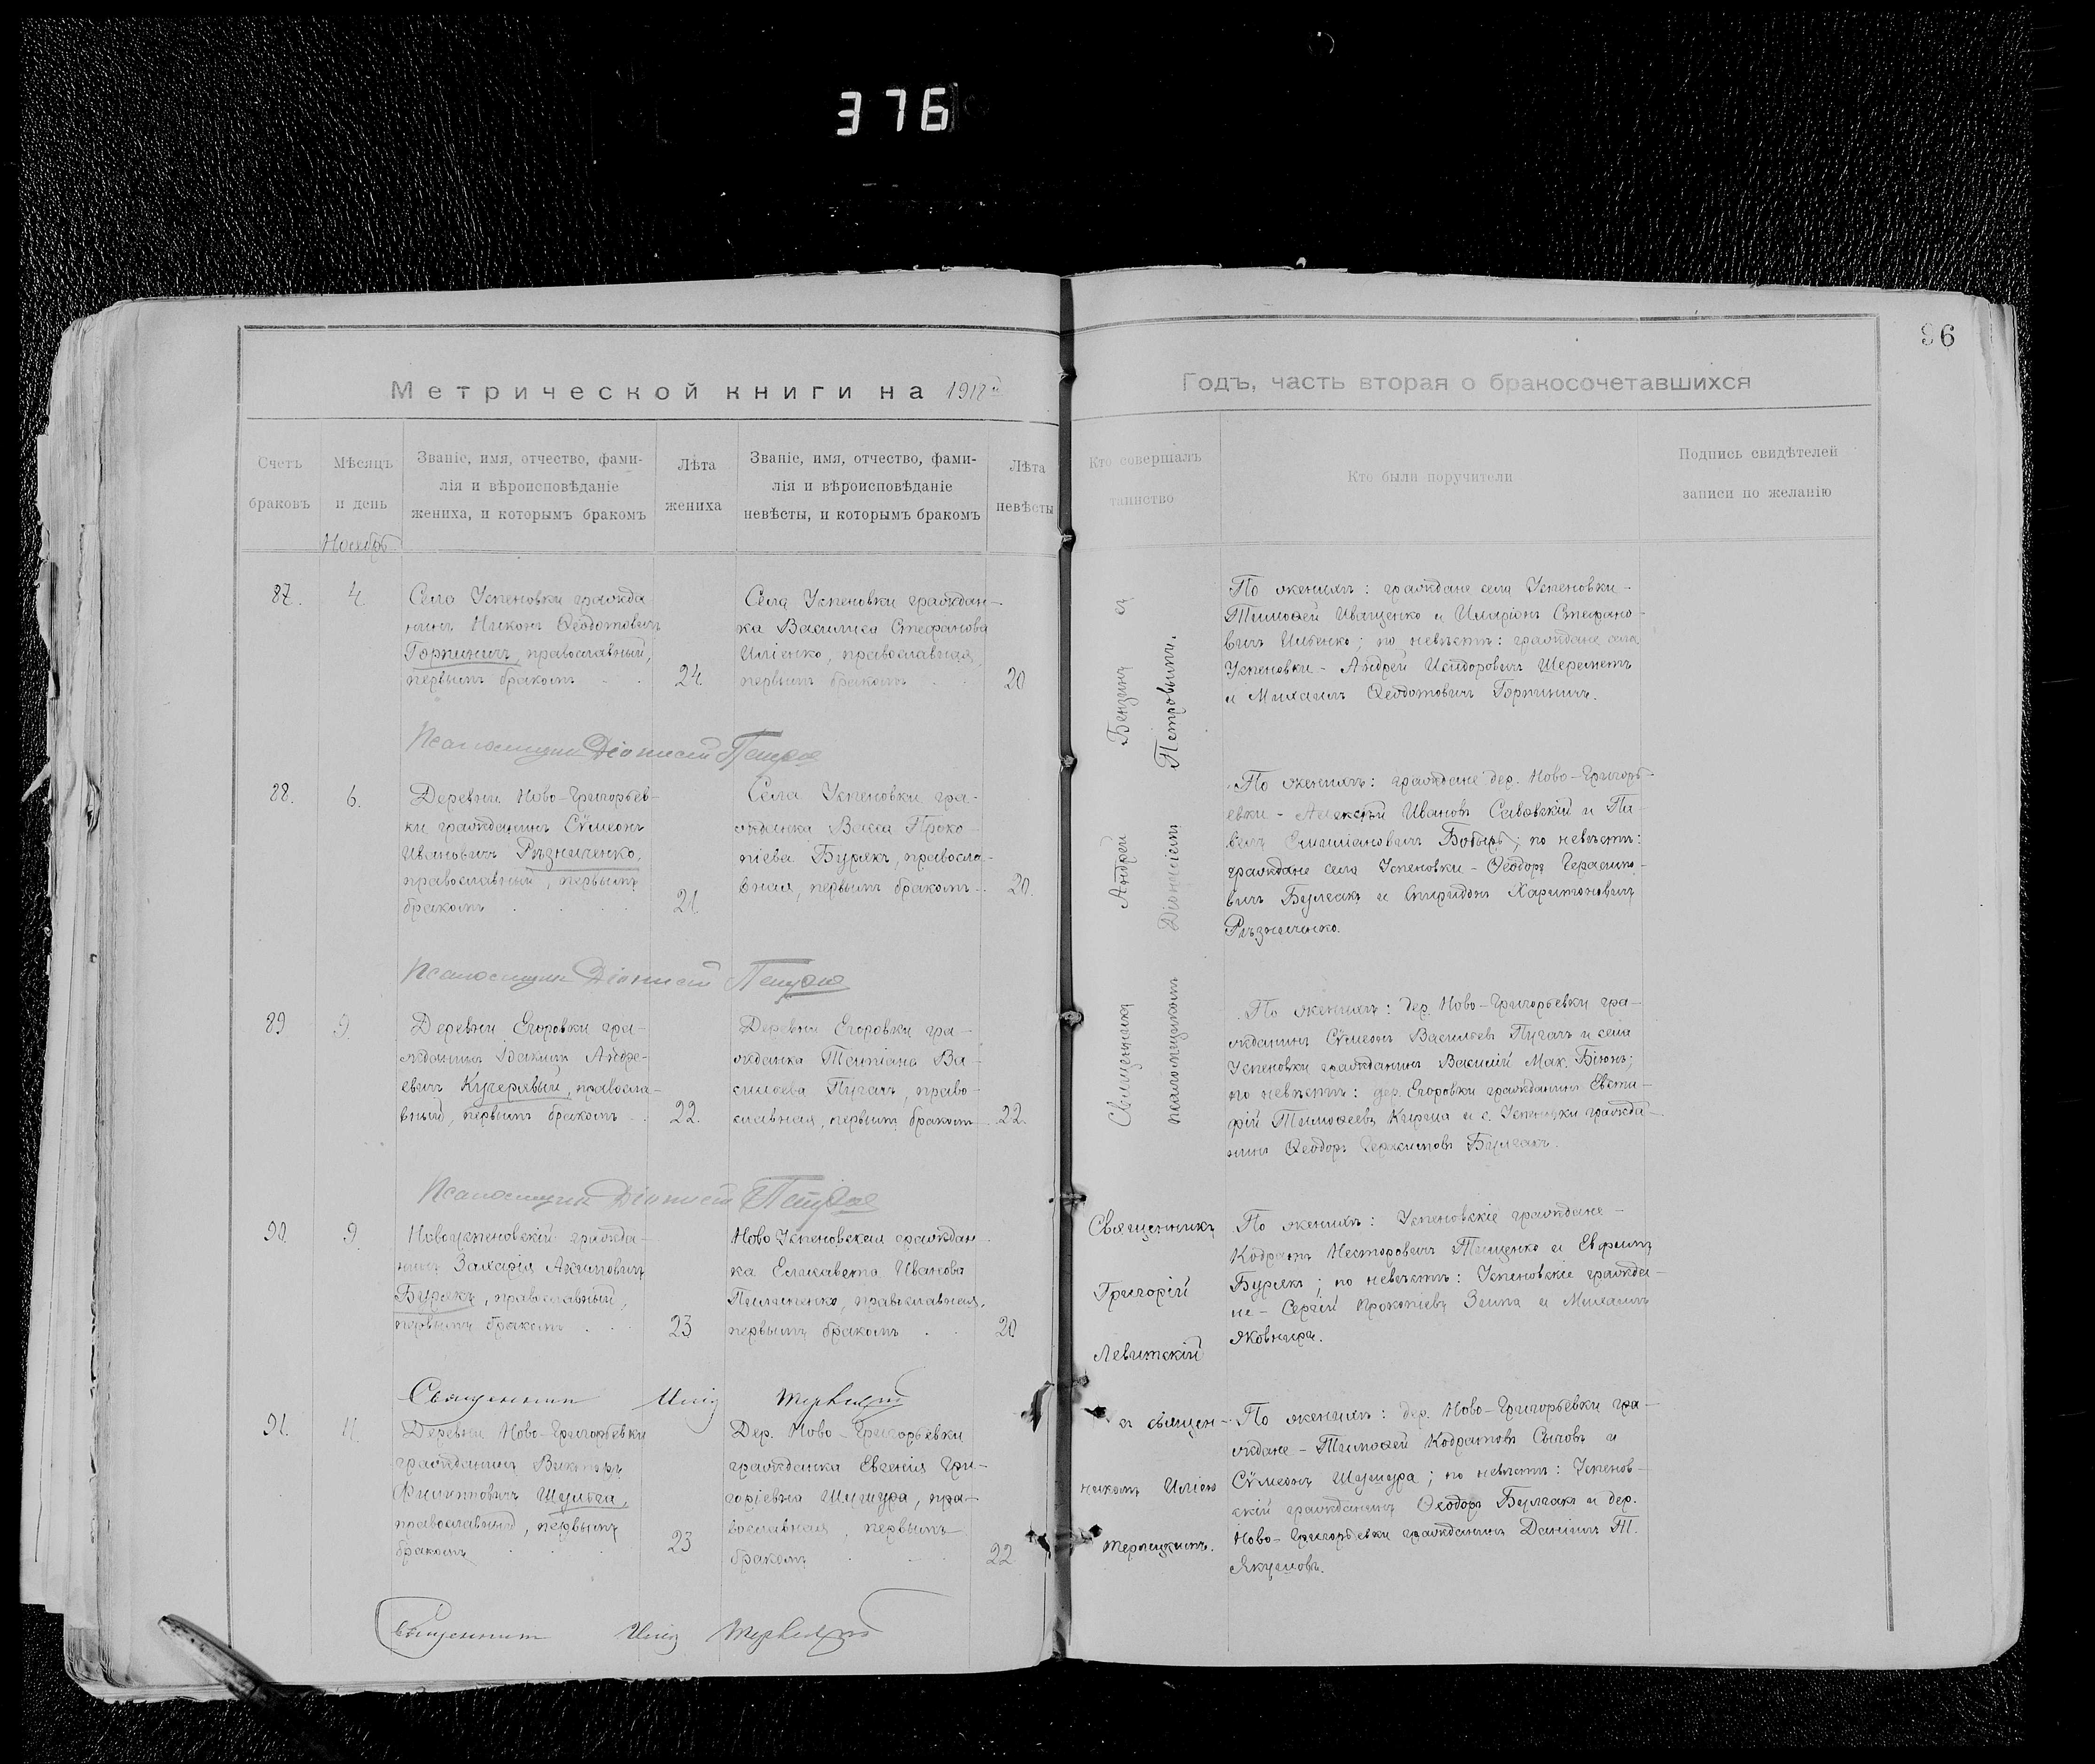 376
96
Метрической книги на 1918й
Годъ, часть вторая о бракосочетавшихся
Счетъ
браковъ
Мѣсяцъ
и день
Званіе, имя, отчество, фами-
лія и вѣроисповѣданіе
жениха, и которымъ бракомъ
Лѣта
жениха
Званіе, имя, отчество, фами-
лія и вѣроисповѣданіе
невѣсты, и которымъ бракомъ
Лѣта
невѣсты
Кто совершалъ
таинство
Кто были поручители
Подпись свидѣтелей
записи по желанію
Ноябрь
87.
4.
Села Успеновки гражда
нинъ Никонъ Ѳеодотовичъ
Горпиничъ, православный,
первымъ бракомъ
24
Села Успеновки граждан-
ка Василиса Стефанова
Иліенко, православная,
первымъ бракомъ
20
По женихѣ: граждане села Успеновки -
Тимоѳей Иващенко и Иларіонъ Стефано-
вичъ Ильенко; по невѣстѣ: граждане села
Успеновки - Андрей Исидоровичъ Шереметъ
и Михаилъ Ѳеодотовичъ Горпиничъ.
Псаломщикъ Діонисій Петровъ
88.
6.
Деревни Ново-Григорьев-
ки гражданинъ Сѵмеонъ
Ивановичъ Рѣзниченко,
православный, первымъ
бракомъ
21
Села Успеновки гра-
жданка Васса Проко-
піева Бурякъ, правосла-
вная, первымъ бракомъ
20.
По женихѣ: граждане дер. Ново-Григорь-
евки - Алексѣй Ивановъ Савовскій и Па-
велъ Емиліановичъ Бобырь; по невѣстѣ:
граждане села Успеновки - Ѳеодоръ Герасимо-
вичъ Булгакъ и Спиридонъ Харитоновичъ
Рѣзниченко.
Псаломщикъ Діонисій Петровъ
89
9.
Деревни Егоровки гра-
жданинъ Іоакимъ Андре-
евичъ Кучерявый, правосла-
вный, первымъ бракомъ
22.
Деревни Егоровки гра-
жданка Татіана Ва-
сильева Пугачъ, право-
славная, первымъ бракомъ
22.
По женихѣ: дер. Ново-Григорьевки гра-
жданинъ Сѵмеонъ Васильевъ Пугачъ и села
Успеновки гражданинъ Василій Мак. Біюнъ;
по невѣстѣ: дер. Егоровки гражданинъ Евста-
фій Тимоѳеевъ Кирпа и с. Успеновки гражда-
нинъ Ѳеодоръ Герасимовъ Булгакъ.
Псаломщикъ Діонисій Петровъ
Священника Андрей Бензина съ
псаломщикомъ Діонисіемъ Петровымъ.
90.
9.
Новоуспеновскій гражда-
нинъ Захарія Акимовичъ
Бурякъ, православный,
первымъ бракомъ
23
Ново Успеновская граждан-
ка Елисавета Иванова
Пилипенко, православная,
первымъ бракомъ
20
Священникъ
Григорій
Левитскій
По женихѣ: Успеновскіе граждане -
Кодратъ Несторовичъ Тищенко и Евфимъ
Бурякъ; по невѣстѣ: Успеновскіе гражда-
не - Сергій Прокопіевъ Заипа и Михаилъ
Яковнира.
Священникъ Илія Терлецкій
91.
11.
Деревни Ново-Григорьевки
гражданинъ Викторъ
Филипповичъ Шульга,
православный, первымъ
бракомъ
23
Дер. Ново-Григорьевки
гражданка Евгенія Гри-
горіевна Шушура, пра-
вославная, первымъ
бракомъ
22
съ священ-
никомъ Иліею
Терлецкимъ.
По женихѣ: дер. Ново-Григорьевки гра-
ждане - Тимоѳей Кодратовъ Сычовъ и
Сѵмеонъ Шушура; по невѣстѣ: Успенов-
скій гражданинъ Ѳеодоръ Булгакъ и дер.
Ново-Григорьевки гражданинъ Даніилъ Т.
Якушовъ.
Священникъ Илія Терлецкій